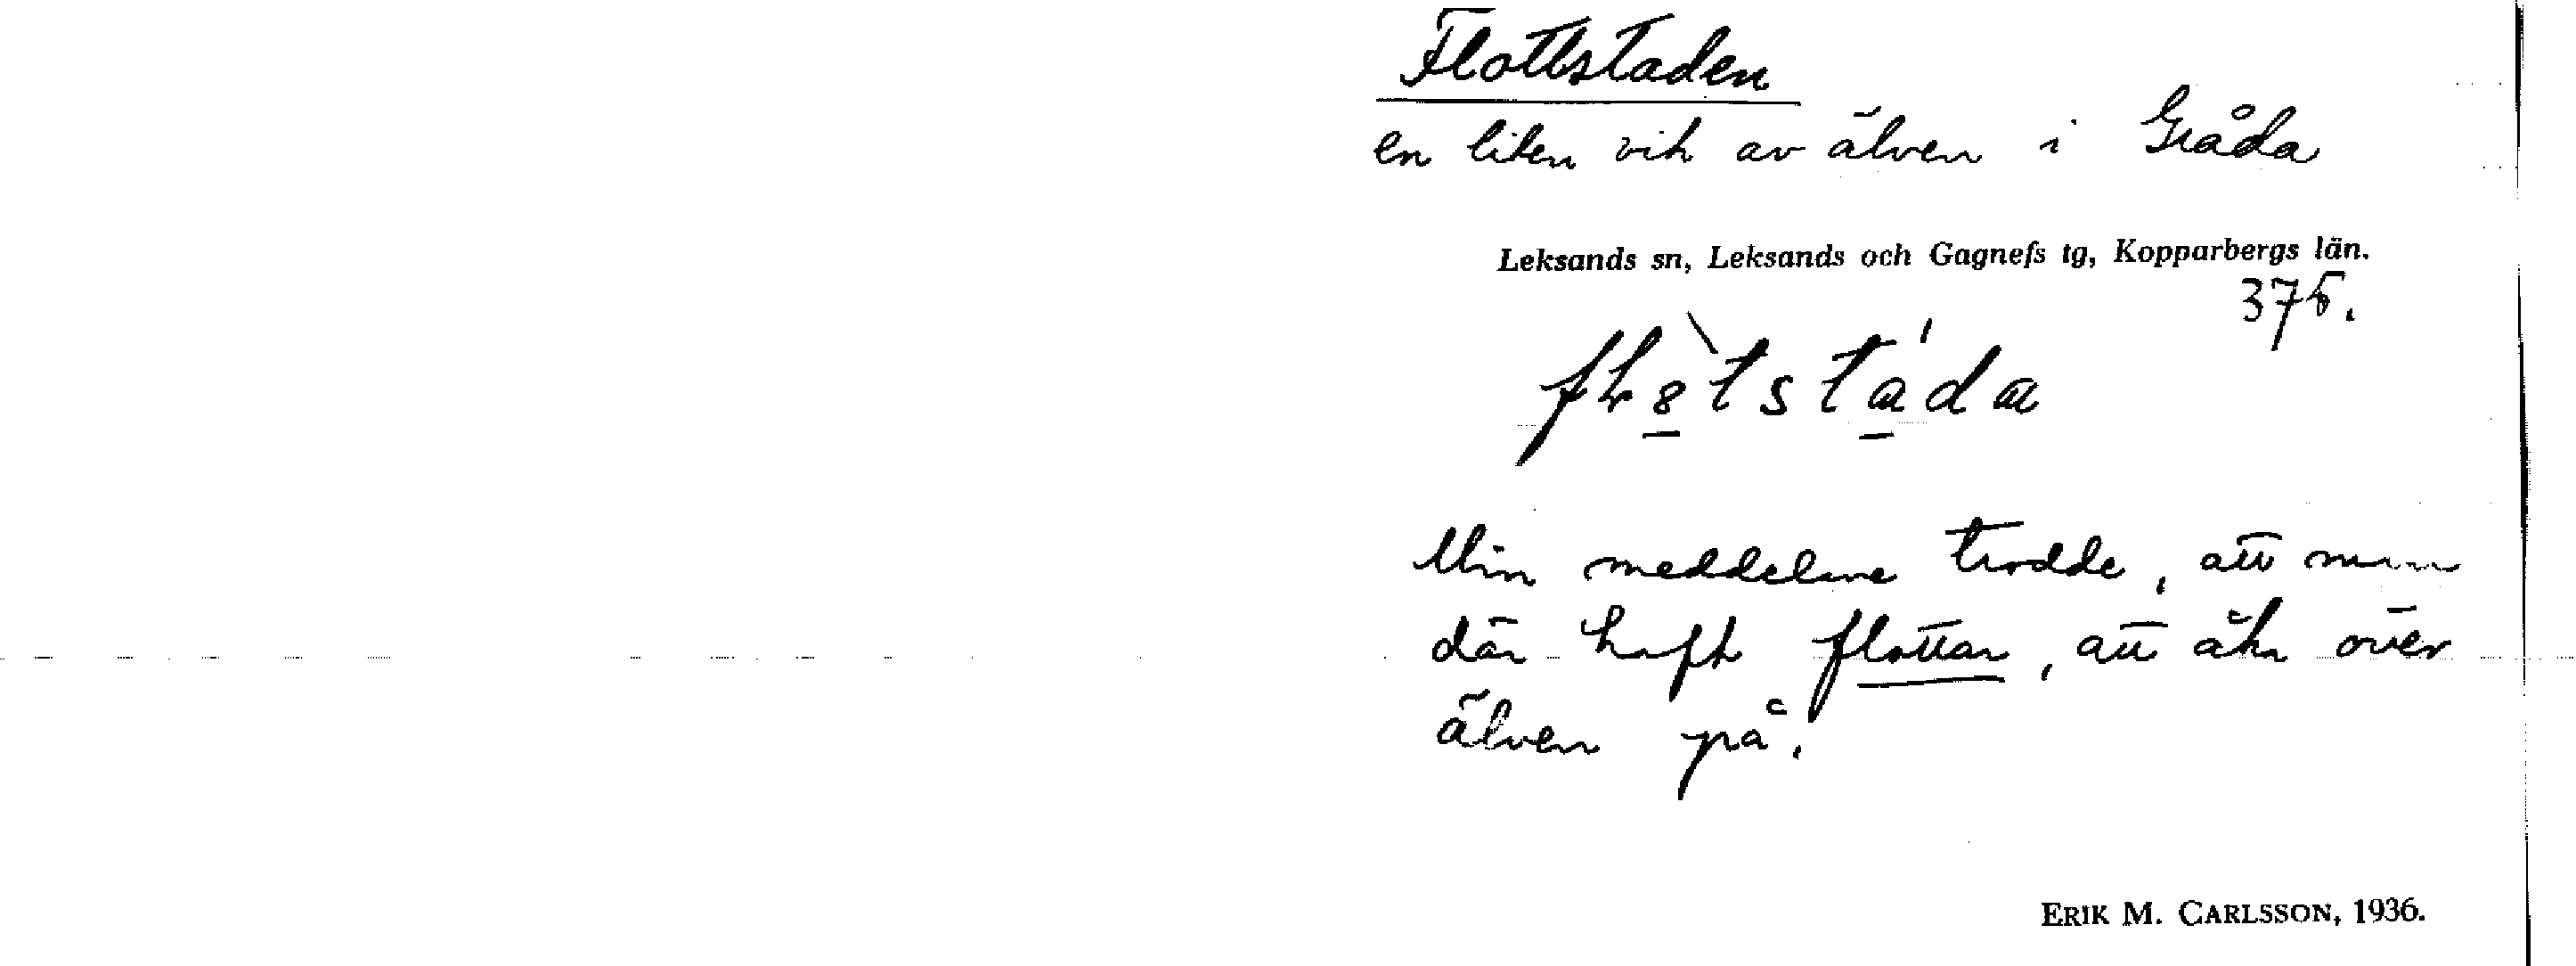 Flottstaden
en liten vik av älven i Gråda
Leksands sn, Leksands och Gagnefs tg, Kopparbergs län.
375.
Min meddelare trodde, att man
där haft flottar, att åka över
älven på.
ERIK M. CARLSSON, 1936.